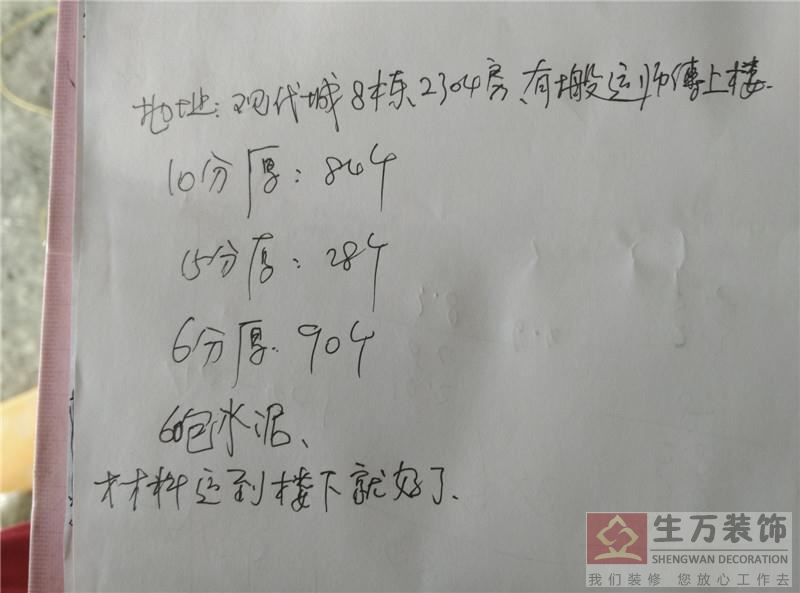 地址:现代城8栋2304房、有搬运师傅上楼.
10分厚:844
15分厚:284
6分厚:904
60包水泥、
材料运到楼下就好了.
生万装饰
SHENGWAN DECORATION
我们装修 您放心工作去